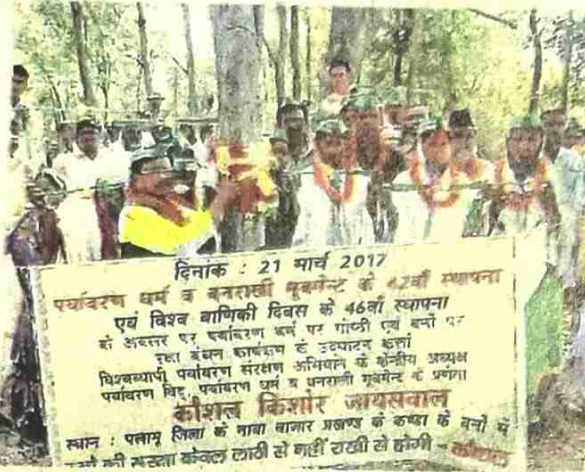 दिनांक : 21 मार्च 2017
पर्यावरण धर्म व वनराखी मूवमेन्ट के 42वाँ स्थापना
एवं विश्व वाणिकी दिवस के 46वाँ स्थापना
के अवसर पर पर्यावरण धर्म पर गोष्ठी एवं वनों पर
रक्षा बंधन कार्यक्रम के उद्घाटन कर्त्ता
विश्वव्यापी पर्यावरण संरक्षण अभियान के केन्द्रीय अध्यक्ष
पर्यावरण विद्, पर्यावरण धर्म व वनराखी मूवमेन्ट के प्रणेता
कौशल किशोर जायसवाल
स्थान : पलामू जिला के नावा बाजार प्रखण्ड के कण्डा के वनों में
की सुरक्षा केवल लाठी से नहीं राखी से होगी - कौशल